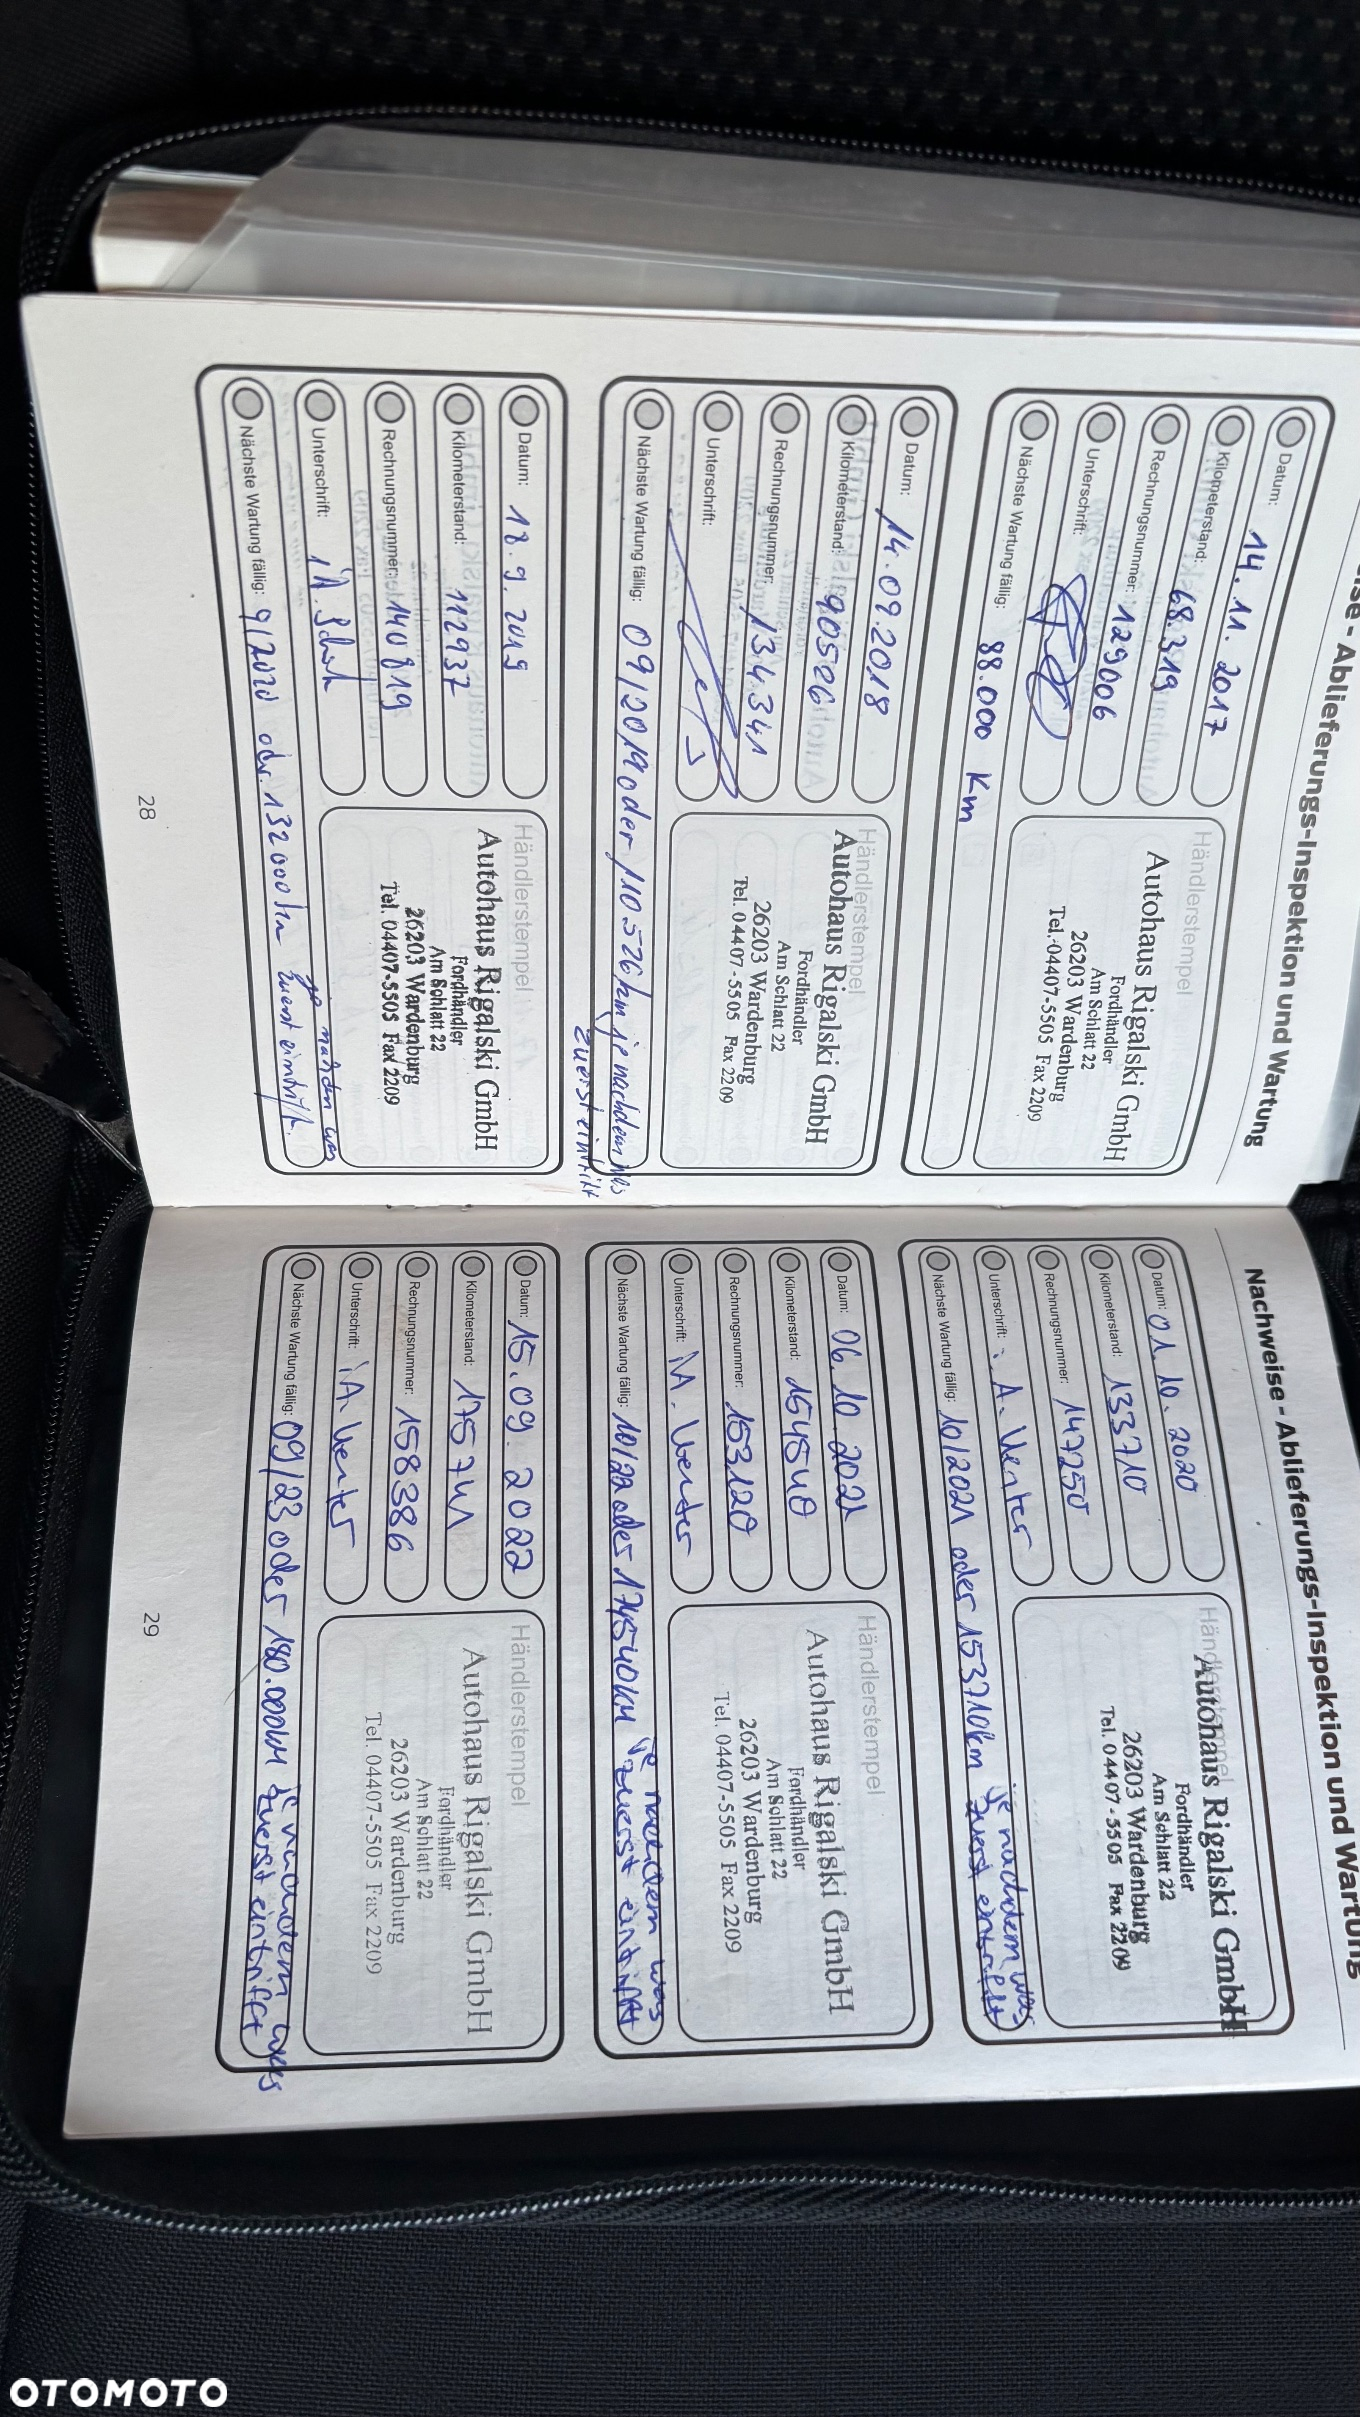 ise - Ablieferungs-Inspektion und Wartung
Datum: 14.11.2017
Kilometerstand: 68.319
Rechnungsnummer: 129006
Unterschrift:
Nächste Wartung fällig: 88.000 Km
Händlerstempel
Autohaus Rigalski GmbH
Fordhändler
Am Schlatt 22
26203 Wardenburg
Tel. 04407-5505 Fax 2209
Datum: 14.09.2018
Kilometerstand: 90526
Rechnungsnummer: 134341
Unterschrift:
Nächste Wartung fällig: 09/2019 oder 110.526 km je nachdem was
zuerst eintritt
Händlerstempel
Autohaus Rigalski GmbH
Fordhändler
Am Schlatt 22
26203 Wardenburg
Tel. 04407-5505 Fax 2209
Datum: 18.9.2019
Kilometerstand: 112937
Rechnungsnummer: 140819
Unterschrift: iA.
Nächste Wartung fällig: 9/2020 odr. 132000 km je nachdem was
zuerst eintrifft.
Händlerstempel
Autohaus Rigalski GmbH
Fordhändler
Am Schlatt 22
26203 Wardenburg
Tel. 04407-5505 Fax 2209
28
Nachweise - Ablieferungs-Inspektion und Wartung
Datum: 01.10.2020
Kilometerstand: 133710
Rechnungsnummer: 147250
Unterschrift: i.A. Venter
Nächste Wartung fällig: 10/2021 oder 153710km je nachdem was
zuerst eintrifft
Händlerstempel
Autohaus Rigalski GmbH
Fordhändler
Am Schlatt 22
26203 Wardenburg
Tel. 04407-5505 Fax 2209
Datum: 06.10.2021
Kilometerstand: 154540
Rechnungsnummer: 153120
Unterschrift: iA. Venter
Nächste Wartung fällig: 10/22 oder 174540KM je nachdem was
zuerst eintrifft
Händlerstempel
Autohaus Rigalski GmbH
Fordhändler
Am Schlatt 22
26203 Wardenburg
Tel. 04407-5505 Fax 2209
Datum: 15.09.2022
Kilometerstand: 175741
Rechnungsnummer: 158386
Unterschrift: iA. Venter
Nächste Wartung fällig: 09/23 oder 180.000KM je nachdem was
zuerst eintrifft
Händlerstempel
Autohaus Rigalski GmbH
Fordhändler
Am Schlatt 22
26203 Wardenburg
Tel. 04407-5505 Fax 2209
29
OTOMOTO